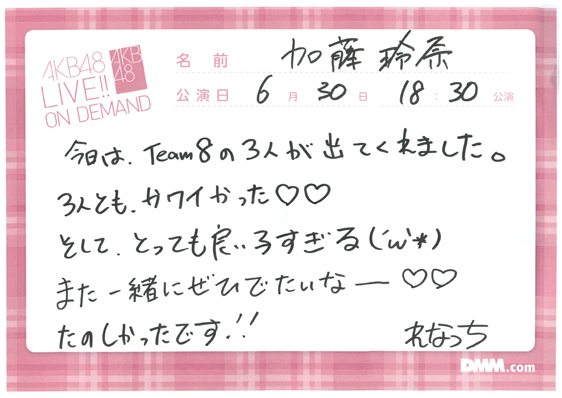 AKB48
LIVE!!
ON DEMAND
AKB
48
名前 加藤玲奈
公演日 6月30日 18:30公演
今日は、Team8の3人が出てくれました。
3人とも、カワイかった♡♡
そして、とっても良い子すぎる(´ω`*)
また一緒にぜひでたいなー♡♡
たのしかったです!!
れなっち
DMM.com